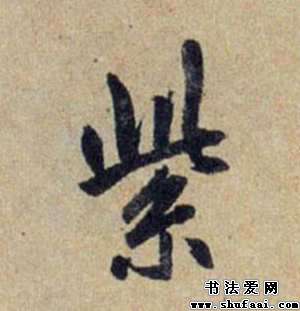 紫
书法爱网
www.shufaai.com